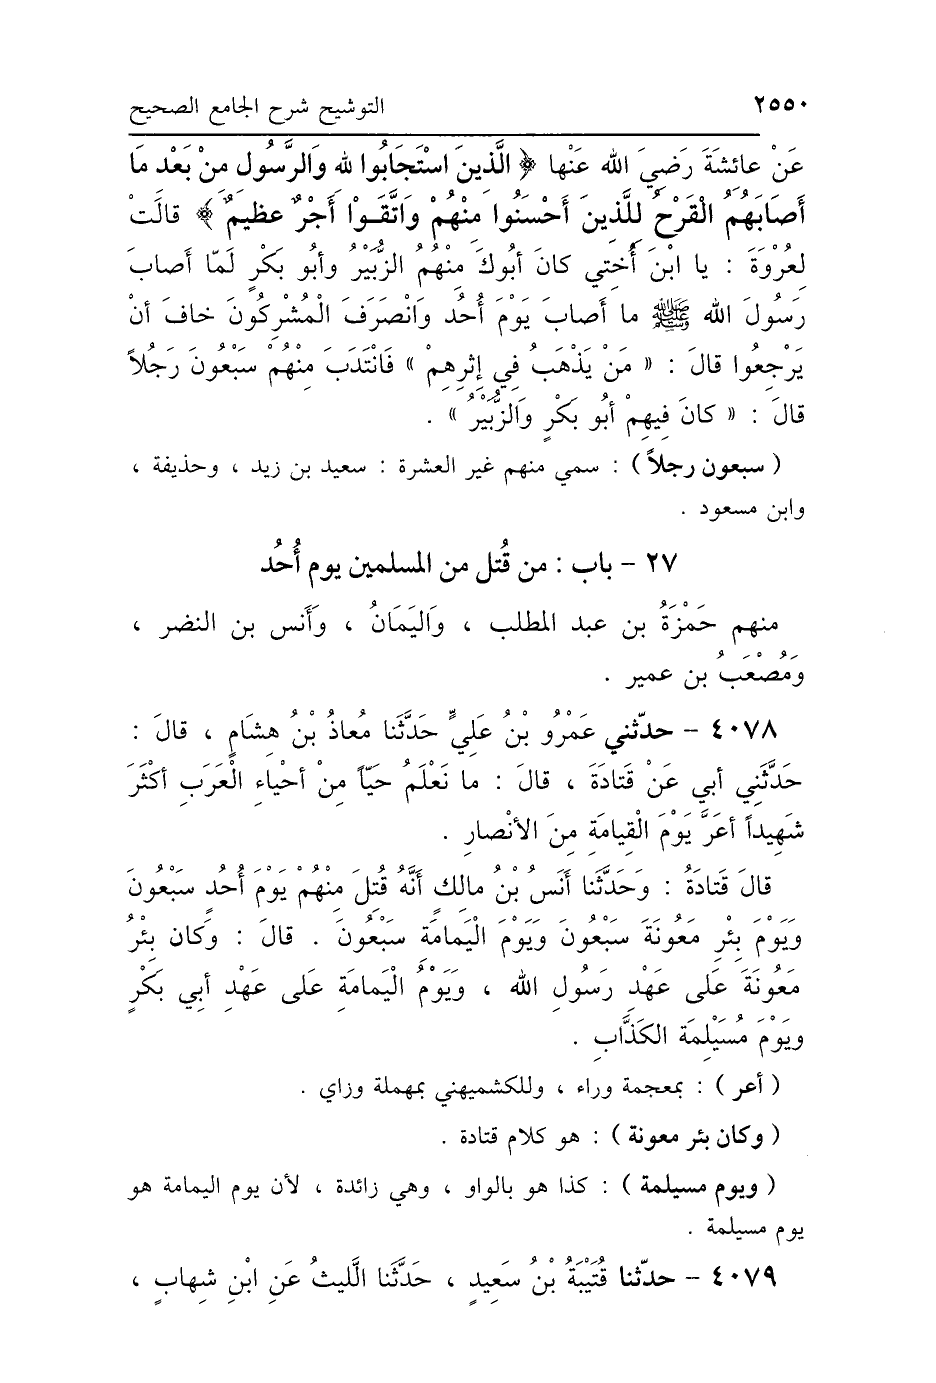 ٢٥٥٠ التوشيح شرح الجامع الصحيح
عَنْ عائِشَةَ رَضِيَ الله عَنْها ﴿ الَّذِينَ اسْتَجَابُوا لله وَالرَّسُولِ مِنْ بَعْدِ مَا
أَصَابَهُمُ الْقَرْحُ لِلَّذِينَ أَحْسَنُوا مِنْهُمْ وَاتَّقَوْا أَجْرٌ عظِيمٌ ﴾ قالَتْ
لِعُرْوَةَ : يا ابْنَ أُخْتِي كانَ أبُوكَ مِنْهُمُ الزُّبَيْرُ وأبُو بَكْرٍ لَمّا أصابَ
رَسُولَ الله ﷺ ما أصابَ يَوْمَ أُحُدٍ وَانْصَرَفَ الْمُشْرِكُونَ خافَ أنْ
يَرْجِعُوا قالَ : « مَنْ يَذْهَبُ فِي إثِرِهِمْ » فَانْتَدَبَ مِنْهُمْ سَبْعُونَ رَجُلاً
قالَ : « كانَ فِيهِمْ أبُو بَكْرٍ وَالزُّبَيْرُ » .
( سبعون رجلاً ) : سمي منهم غير العشرة : سعيد بن زيد ، وحذيفة ،
وابن مسعود .
٢٧ - باب : من قُتل من المسلمين يوم أُحُد
منهم حَمْزَةُ بن عبد المطلب ، وَاليَمَانُ ، وأَنس بن النضر ،
وَمُصْعَبُ بن عمير .
٤٠٧٨ - حدّثني عَمْرُو بْنُ عَلِيٍّ حَدَّثَنا مُعاذُ بْنُ هِشَامٍ ، قالَ :
حَدَّثَنِي أبي عَنْ قَتادَةَ ، قالَ : ما نَعْلَمُ حَيّاً مِنْ أحْياءِ الْعَرَبِ أكْثَرَ
شَهِيداً أعَرَّ يَوْمَ الْقِيامَةِ مِنَ الأنْصارِ .
قالَ قَتادَةُ : وَحَدَّثَنا أنَسُ بْنُ مالِكٍ أنَّهُ قُتِلَ مِنْهُمْ يَوْمَ أُحُدٍ سَبْعُونَ
وَيَوْمَ بِئْرِ مَعُونَةَ سَبْعُونَ وَيَوْمَ الْيمامَةِ سَبْعُونَ . قالَ : وَكان بِئْرُ
مَعُونَةَ عَلى عَهْدِ رَسُولِ الله ، ويَوْمُ الْيَمامَةِ عَلى عَهْدِ أبي بَكْرٍ
ويَوْمَ مُسَيْلِمَةَ الكَذَّابِ .
( أعر ) : بمعجمة وراء ، وللكشميهني بمهملة وزاي .
( وكان بئر معونة ) : هو كلام قتادة .
( ويوم مسيلمة ) : كذا هو بالواو ، وهي زائدة ، لأن يوم اليمامة هو
يوم مسيلمة .
٤٠٧٩ - حدّثنا قُتَيْبَةُ بْنُ سَعِيدٍ ، حَدَّثَنا الَّليثُ عَنِ ابْنِ شِهابٍ ،